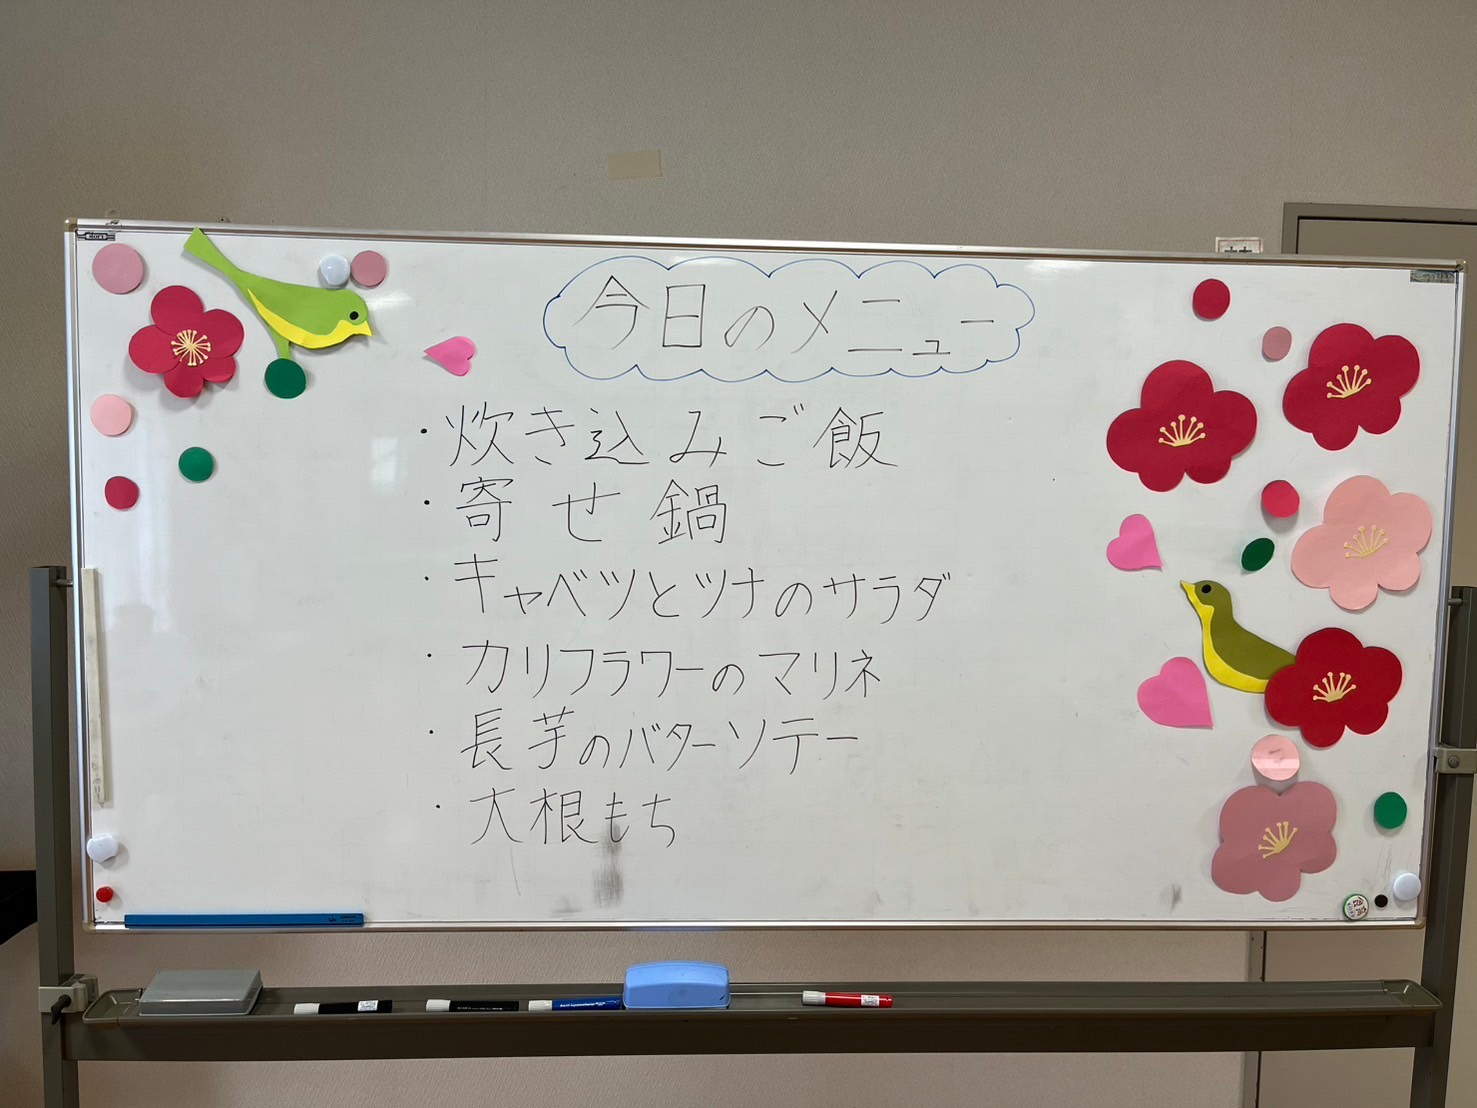 今日のメニュー
・炊き込みご飯
・寄せ鍋
・キャベツとツナのサラダ
・カリフラワーのマリネ
・長芋のバターソテー
・大根もち